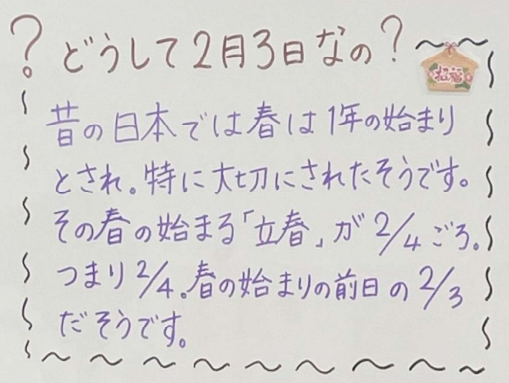 ? どうして2月3日なの?
招福
昔の日本では春は1年の始まり
とされ。特に大切にされたそうです。
その春の始まる「立春」が2/4ごろ。
つまり2/4。春の始まりの前日の2/3
だそうです。